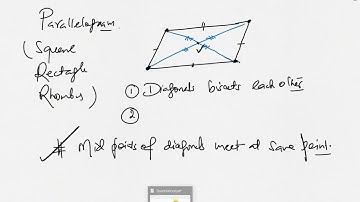 Parallelogram.
(Square
Rectagle
Rhombus)
① Diagonals bisects each other
②
* Mid points of diagonals meet at same point.